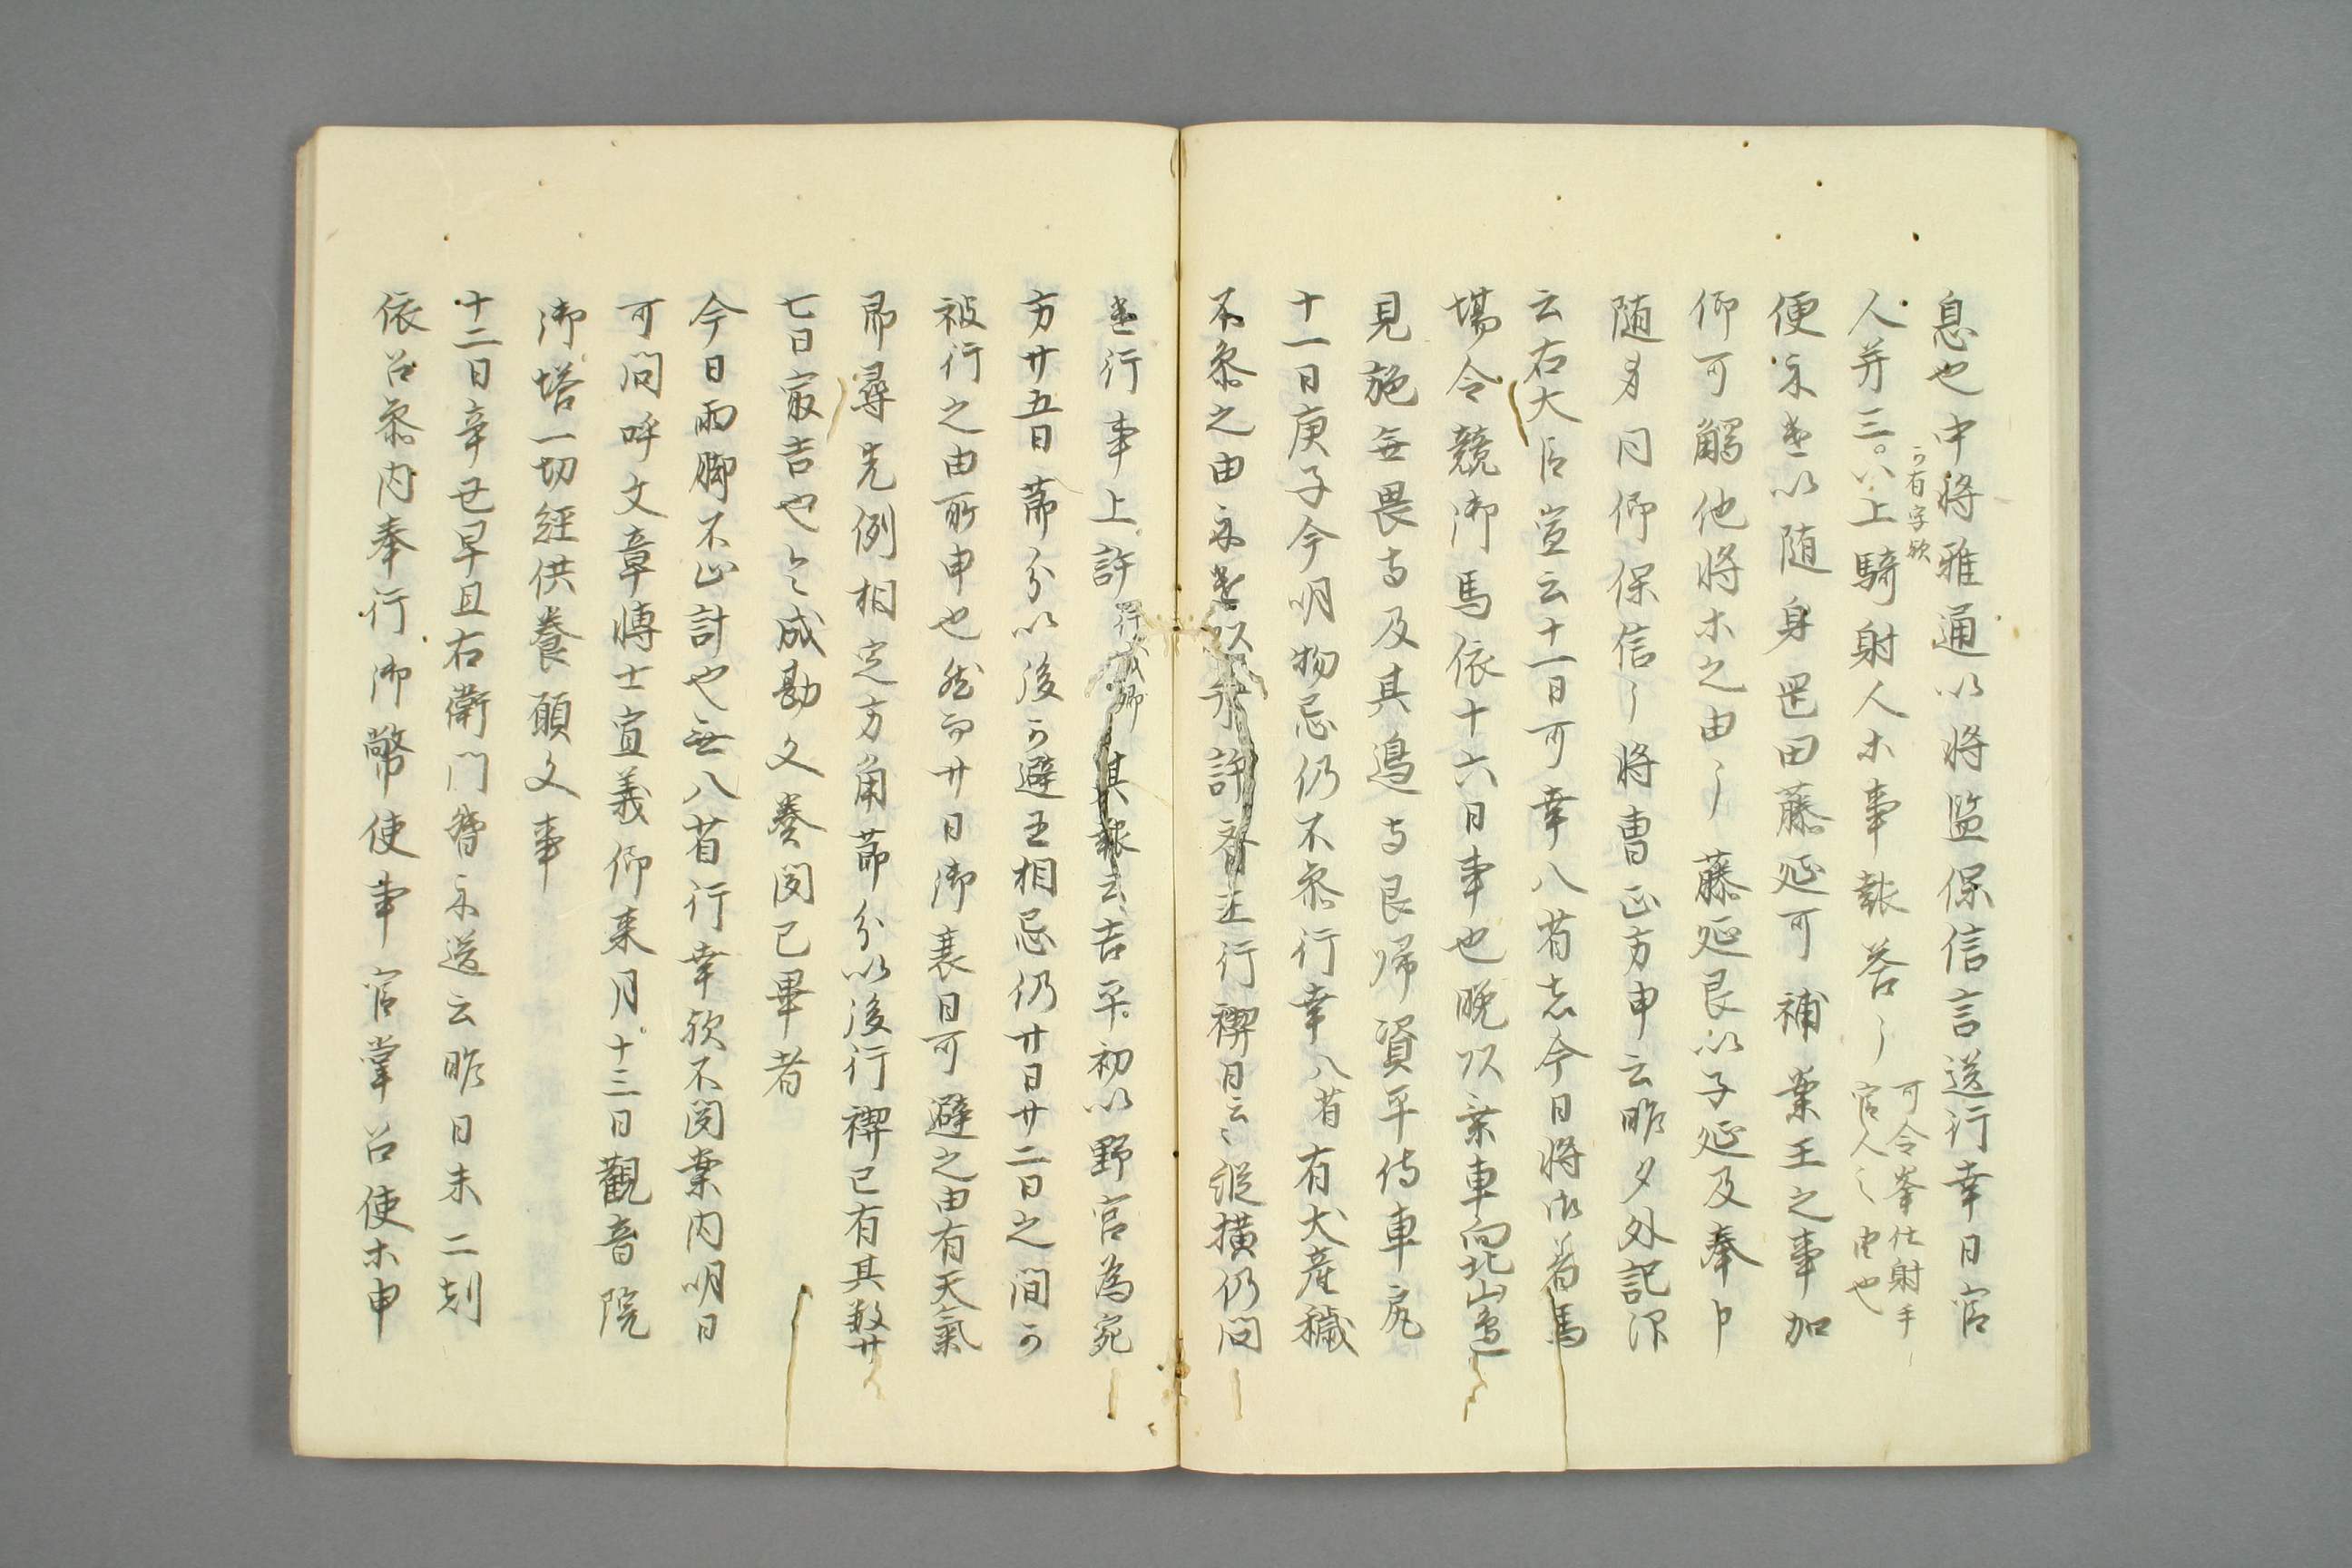 息也中将雅通以将監保信言送行幸日官
人并三。以上騎射人ホ事報答了可令峯仕射手官人之由也
可有字欤
便示遣以随身罡田藤延可補業王之事加
仰可觸他将ホ之由了藤延艮以子延及奉卩
随身同仰保信了将曹正方申云昨夕外記
云右大臣宣云十一日可幸八省者今日将御着馬
場令競御馬依十六日事也晩以乗車向北山邊
見施無畏寺及其邊寺艮帰資平侍車尻
十一日庚子今明物忌仍不参行幸八省有犬産穢
不参之由示遣以許斎王行禊日云々縦横仍問
遣行事上許行成卿其報云吉平初以野宮為宛
方廿五日節分以後可避王相忌仍廿日廿二日之間可
被行之由所申也然而廿日御衰日可避之由有天氣
即尋先例相定方角節分以後行禊已有其数廿
七日最吉也々成勘文奏聞已畢者
今日雨脚不止計也無八省行幸欤不聞案内明日
可問呼文章博士宣義仰来月十三日觀音院
御塔一切經供養願文事
十二日辛丑早旦右衛門督示送云昨日未二刻
依召参内奉行御幣使事官掌召使ホ申